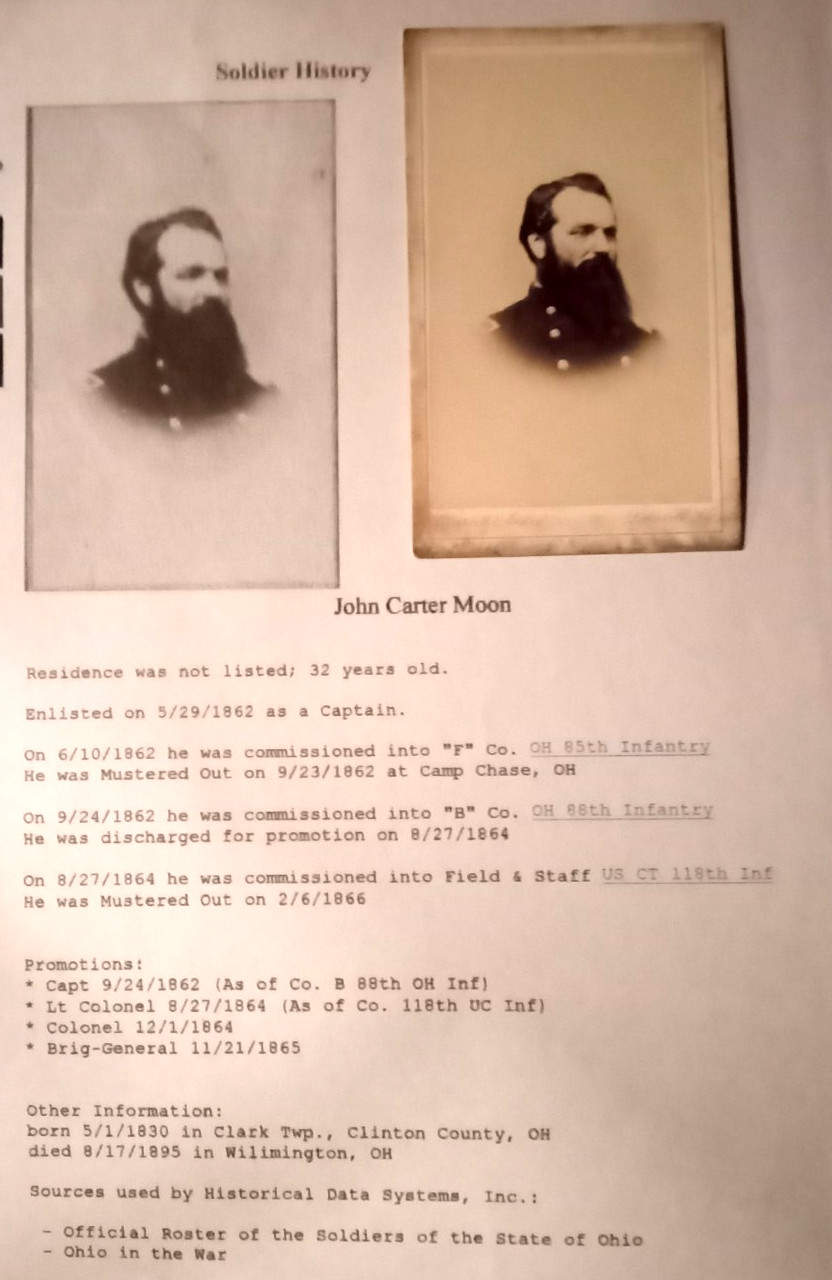 Soldier History
John Carter Moon
Residence was not listed; 32 years old.
Enlisted on 5/29/1862 as a Captain.
On 6/10/1862 he was commissioned into "F" Co. OH 85th Infantry
He was Mustered Out on 9/23/1862 at Camp Chase, OH
On 9/24/1862 he was commissioned into "B" Co. OH 88th Infantry
He was discharged for promotion on 8/27/1864
On 8/27/1864 he was commissioned into Field & Staff US CT 118th Inf
He was Mustered Out on 2/6/1866
Promotions:
* Capt 9/24/1862 (As of Co. B 88th OH Inf)
* Lt Colonel 8/27/1864 (As of Co. 118th UC Inf)
* Colonel 12/1/1864
* Brig-General 11/21/1865
Other Information:
born 5/1/1830 in Clark Twp., Clinton County, OH
died 8/17/1895 in Wilimington, OH
Sources used by Historical Data Systems, Inc.:
- Official Roster of the Soldiers of the State of Ohio
- Ohio in the War